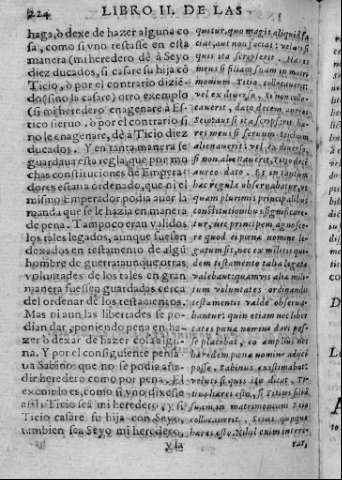 224 LIBRO II. DE LAS
haga, ò dexe de hazer alguna co
sa, como si vno testasse en esta
manera (mi heredero dè a Seyo
diez ducados, si casare su hija cõ
Ticio, ò por el contrario diziẽ
do (sino la casare) otro exemplo
(si mi heredero enagenare a Es-
tico sieruo, ò por el contrario si
no le enagenare, dè a Ticio diez
ducados. Y en tanta manera se
guardaua esta regla, que por mu
chas constituciones de Empera-
dores estaua ordenado, que ni el
mismo Emperador podia auer la
manda que se le hazia en manera
de pena. Tampoco eran validos
los tales legados, aunque fuessen
dexados en testamento de algũ
hombre de guerra: aunque otras
voluntades de los tales en gran
manera fuessen guardadas cerca
del ordenar de los testamentos.
Mas ni aun las libertades se po-
dian dar, poniendo pena en ha-
zer ò dexar de hazer cosa algu-
na. Y por el consiguiente pensa
ua Sabino que no se podia aña-
dir heredero como por pena. El
exemplo es, como si vno dixesse
assi, Ticio sea mi heredero, y si
Ticio casare su hija con Seyo,
tambien sea Seyo mi heredero,
y la
quitur, quo magis aliquid fa
ciat, aut non faciat: velut si
quis ita scripserit. Hæres
meus si filiam suam in matri
monium Titio collocauerit:
vel ex diuerso, si non collo-
cauerit, dato decem aureos
Seio: aut si ita scripserit, hæ
res meus si seruum Stichum
alienauerit, vel ex diuerso,
si non alienauerit, Titio decẽ
aureo dato. Et in tantum
hæc regula obseruabatur, vt
quam plurimis principalibus
constitutionibus significare-
tur, nec principem agnosce-
re quod ei pœnæ nomine le-
gatum sit, nec ex militis qui-
dem testamento talia legata
valebant: quamuis aliæ mili-
tum voluntates ordinandis
testamentis valde obserua-
bantur: quin etiam nec liber
tates pœnæ nomine dari pos-
se placebat, eo amplius nec
hæredem pœnæ nomine adijci
posse, Sabinus existimabat:
veluti si quis ita dicat, Ti-
tius hæres esto, si Titius filiã
suam in matrimonium Seio
collocauerit, Seius quoque
hæres esto. Nihil enim intere-
rat,